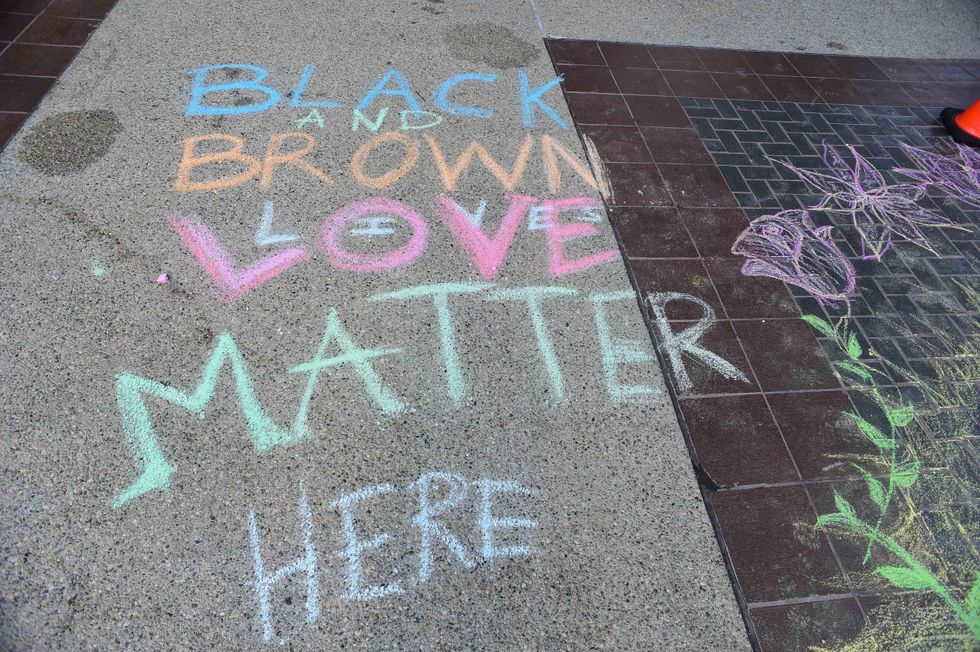 BLACK
AND
BROWN
LIVES
LOVE
MATTER
HERE